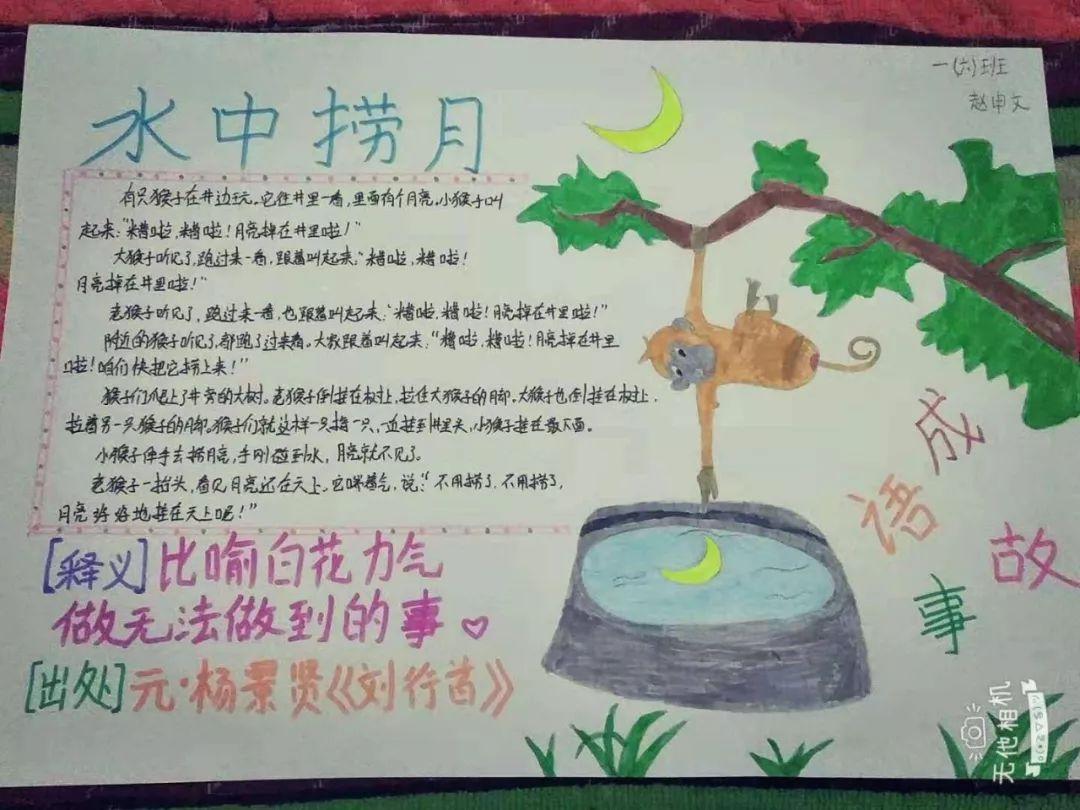 水中捞月
一(六)班
赵申文
有只猴子在井边玩。它往井里一看,里面有个月亮。小猴子叫
起来:“糟啦,糟啦!月亮掉在井里啦!”
大猴子听见了,跑过来一看,跟着叫起来:“糟啦,糟啦!
月亮掉在井里啦!”
老猴子听见了,跑过来一看,也跟着叫起来:“糟啦,糟啦!月亮掉在井里啦!”
附近的猴子听见了,都跑了过来看。大教跟着叫起来:“糟啦,糟啦!月亮掉在井里
啦!咱们快把它捞上来!”
猴子们爬上了井旁的大树。老猴子倒挂在树上,拉住大猴子的脚。大猴子也倒挂在树上,
拉着另一只猴子的脚。猴子们就这样一只接一只,一直挂到井里头,小猴子挂在最下面。
小猴子伸手去捞月亮,手刚碰到水,月亮就不见了。
老猴子一抬头,看见月亮还在天上。它喘着气,说:“不用捞了,不用捞了,
月亮好好地挂在天上呢!”
[释义]比喻白花力气
做无法做到的事
[出处]元·杨景贤《刘行首》
成
语
故
事
无他相机